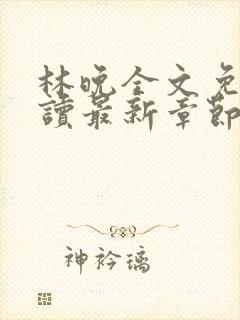 林晚全文免
讀最新章節
神衿璃